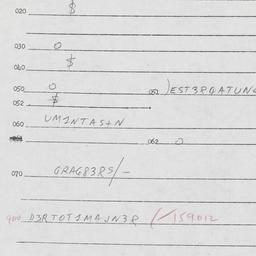 020 $
030 O
040 $
050 O 051 )EST3RQATUNG
052 $
060 UM1NTAS+N
062 O
070 GRAG83RS/-
900 D3RTOT1MAJN38 (/159012